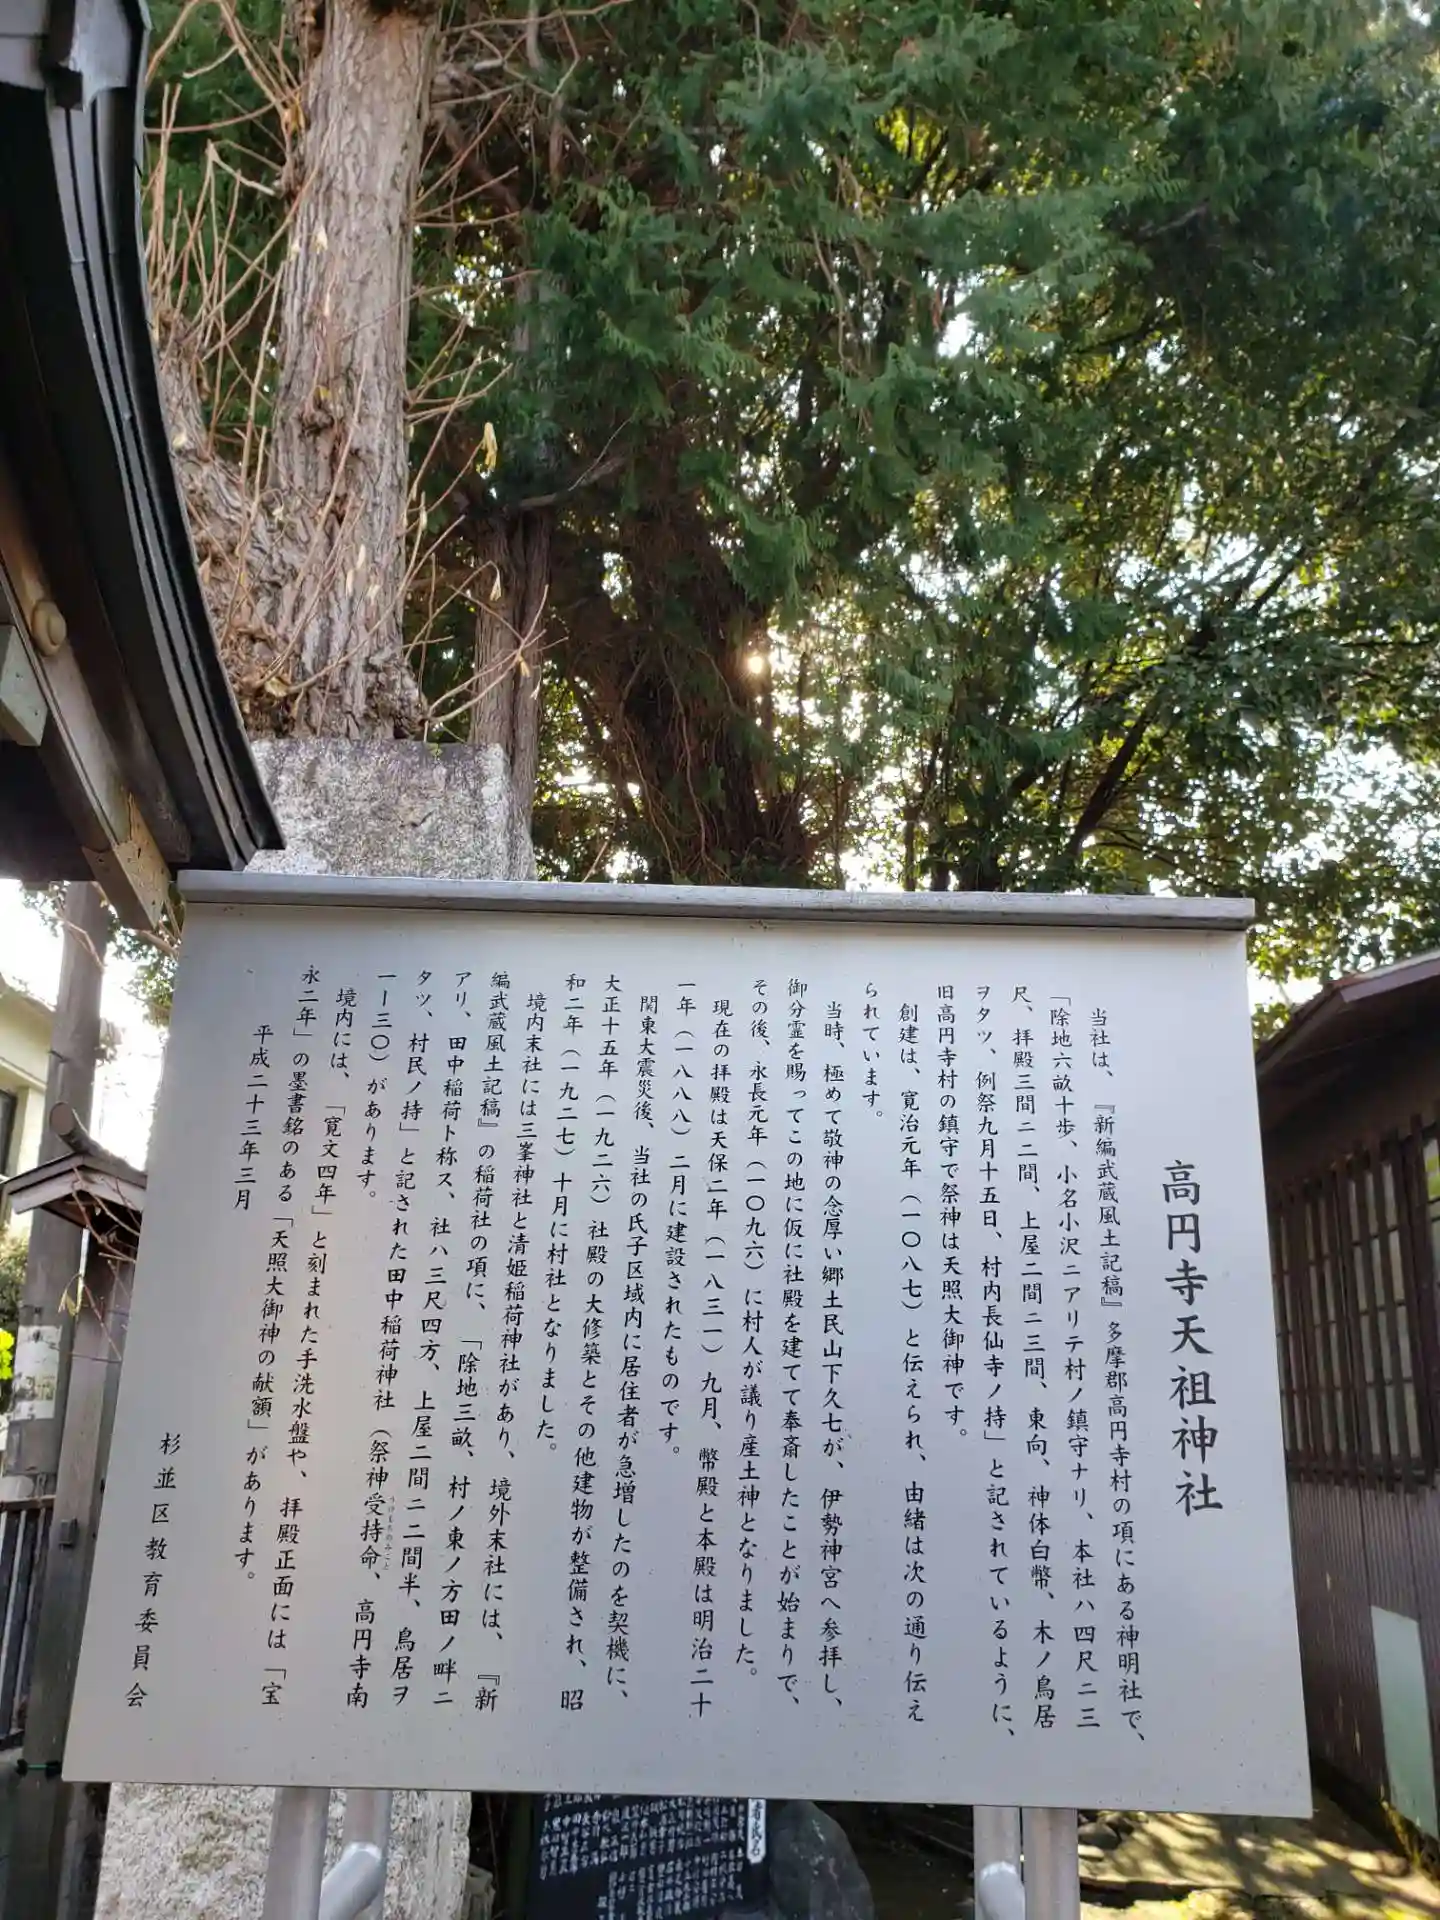 高円寺天祖神社
当社は、『新編武蔵風土記稿』多摩郡高円寺村の項にある神明社で、
「除地六畝十歩、小名小沢ニアリテ村ノ鎮守ナリ、本社ハ四尺ニ三
尺、拝殿三間ニ二間、上屋二間ニ三間、東向、神体白幣、木ノ鳥居
ヲタツ、例祭九月十五日、村内長仙寺ノ持」と記されているように、
旧高円寺村の鎮守で祭神は天照大御神です。
創建は、寛治元年（一〇八七）と伝えられ、由緒は次の通り伝え
られています。
当時、極めて敬神の念厚い郷土民山下久七が、伊勢神宮へ参拝し、
御分霊を賜ってこの地に仮に社殿を建てて奉斎したことが始まりで、
その後、永長元年（一〇九六）に村人が議り産土神となりました。
現在の拝殿は天保二年（一八三一）九月、幣殿と本殿は明治二十
一年（一八八八）二月に建設されたものです。
関東大震災後、当社の氏子区域内に居住者が急増したのを契機に、
大正十五年（一九二六）社殿の大修築とその他建物が整備され、昭
和二年（一九二七）十月に村社となりました。
境内末社には三峯神社と清姫稲荷神社があり、境外末社には、『新
編武蔵風土記稿』の稲荷社の項に、「除地三畝、村ノ東ノ方田ノ畔ニ
アリ、田中稲荷ト称ス、社ハ三尺四方、上屋二間ニ二間半、鳥居ヲ
タツ、村民ノ持」と記された田中稲荷神社（祭神受持命、高円寺南
うけもちのみこと
一ー三〇）があります。
境内には、「寛文四年」と刻まれた手洗水盤や、拝殿正面には「宝
永二年」の墨書銘のある「天照大御神の献額」があります。
平成二十三年三月
杉並区教育委員会